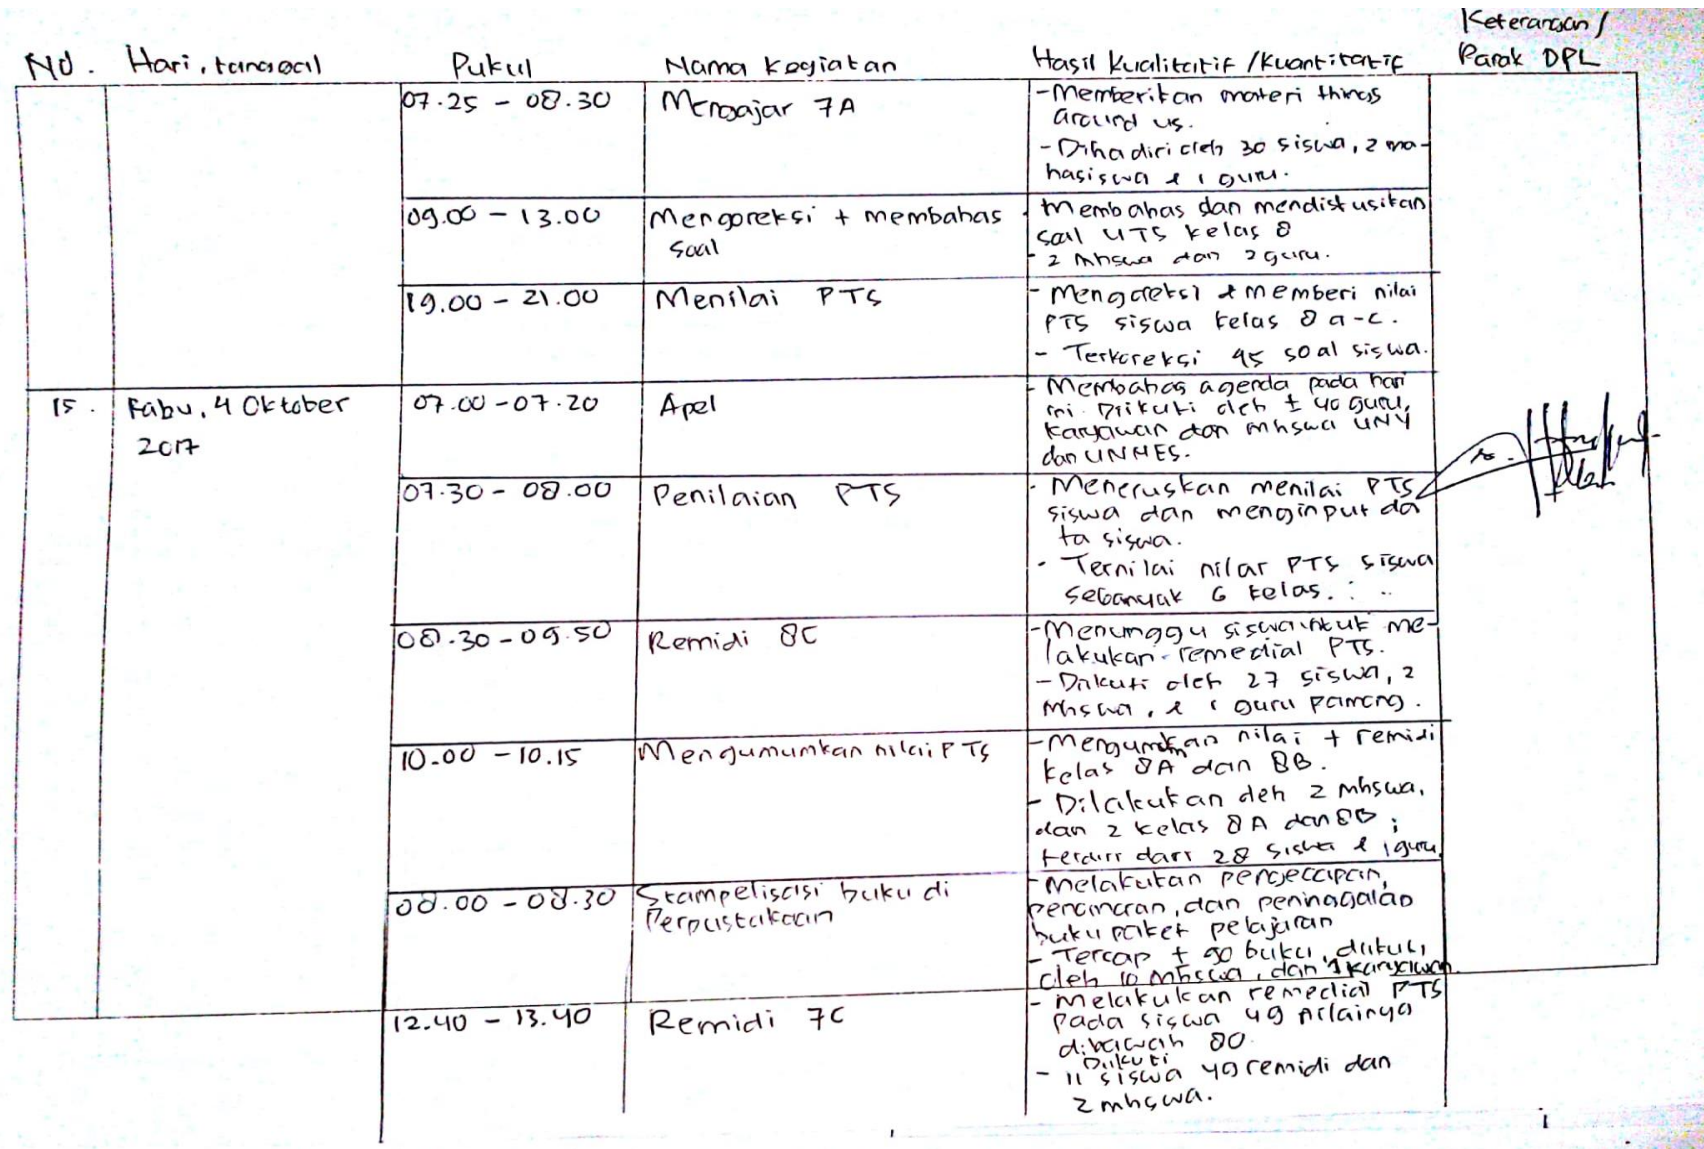 Keterangan /
No. Hari, tanggal Pukul Nama Kegiatan Hasil Kualitatif /Kuantitatif Parak DPL
07.25 - 08.30 Mengajar 7A
- Memberikan materi things
around us.
- Dihadiri oleh 30 siswa, 2 ma-
hasiswa & 1 guru.
09.00 - 13.00 Mengoreksi + membahas
soal
- Membahas dan mendiskusikan
soal UTS kelas 8
- 2 mhswa dan 2 guru.
19.00 - 21.00 Menilai PTS
- Mengoreksi & memberi nilai
PTS siswa kelas 8 a-c.
- Terkoreksi 45 soal siswa.
15. Rabu, 4 Oktober
2017
07.00 - 07.20 Apel
- Membahas agenda pada hari
ini. Diikuti oleh ± 40 guru,
karyawan dan mhswa UNY
dan UNNES.
07.30 - 08.00 Penilaian PTS
- Meneruskan menilai PTS
siswa dan menginput da
ta siswa.
- Ternilai nilai PTS siswa
sebanyak 6 kelas.
08.30 - 09.50 Remidi 8C
- Menunggu siswa untuk me-
lakukan remedial PTS.
- Diikuti oleh 27 siswa, 2
mhswa, & 1 guru pamong.
10.00 - 10.15 Mengumumkan nilai PTS
- Mengumkan nilai + remidi
kelas 8A dan 8B.
- Dilakukan oleh 2 mhswa,
dan 2 kelas 8A dan 8B ;
terdiri dari 28 siswa & 1 guru.
08.00 - 08.30 Stampelisasi buku di
Perpustakaan
- Melakukan pengecapan,
penomoran, dan peninggalan
buku paket pelajaran
- Tercap ± 90 buku, diikuti
oleh 10 mhswa, dan 1 karyawan.
12.40 - 13.40 Remidi 7C
- Melakukan remedial PTS
pada siswa yg nilainya
dibawah 80.
Diikuti
- 11 siswa yg remidi dan
2 mhswa.